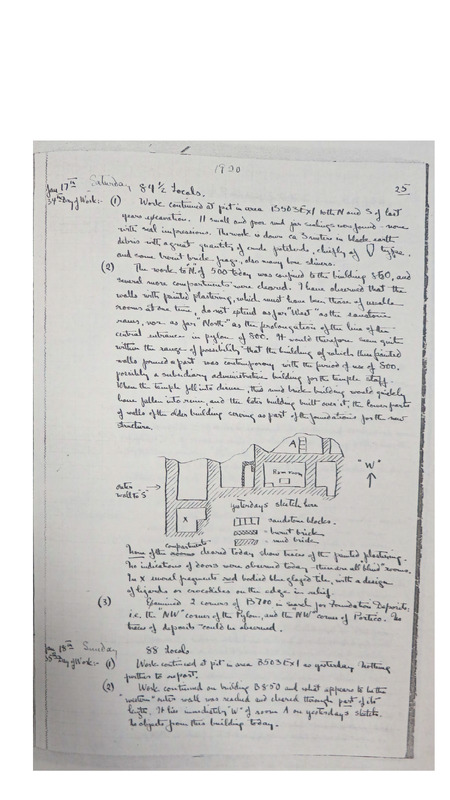 1920
25
Jan 17th Saturday 84 1/2 Locals.
34th Day of Work:- (1) Work continued at pit in area B503EX1 both N and S of last
years excavation. 11 small and poor mud jar sealings were found - none
with seal impressions. The work is down ca 3 meters in black earth
debris with a great quantity of crude potsherds, chiefly of type
and some burnt brick frags, also many bone slivers.
(2) The work to "N" of 500 today was confined to the building 850, and
several more compartments were cleared. I have observed that the
walls with painted plastering, which must have been those of usable
rooms at one time, do not extend as far "West" as the sandstone
rooms, nor as far "North" as the prolongation of the line of the
central entrance in pylon of 800. It would therefore seem quite
within the range of possibility that the building of which these painted
walls formed a part was contemporary with the period of use of 800.
possibly a subsidiary administration building for the temple staff.
When the temple fell into disuse, this mud brick building would quickly
have fallen into ruin, and the later building built over it, the lower parts
of walls of the older building serving as part of the foundations for the new
structure.
A
Raw room
"W"
outer
wall to S
X
yesterdays sketch here
sandstone blocks.
burnt brick
mud brick
compartments
None of the rooms cleared today show traces of the painted plastering.
No indications of doors were observed today - them are all blind "rooms.
In X several fragments red bodied blue glazed tile, with a design
of lizards or crocodiles on the edge in relief.
(3) Examined 2 corners of B700 in search for Foundation Deposits:
i.e. the "NW" corner of the Pylon, and the "NW" corner of Portico. No
traces of deposits could be observed.
Jan 18th Sunday 88 Locals
35th Day of Work:- (1) Work continued at pit in area B503EX1 as yesterday. Nothing
further to report.
(2) Work continued on building B850 and what appears to be the
"western" outer wall was reached and cleared through part of its
length. It lies immediately "W" of room A on yesterdays sketch.
No objects from this building today.